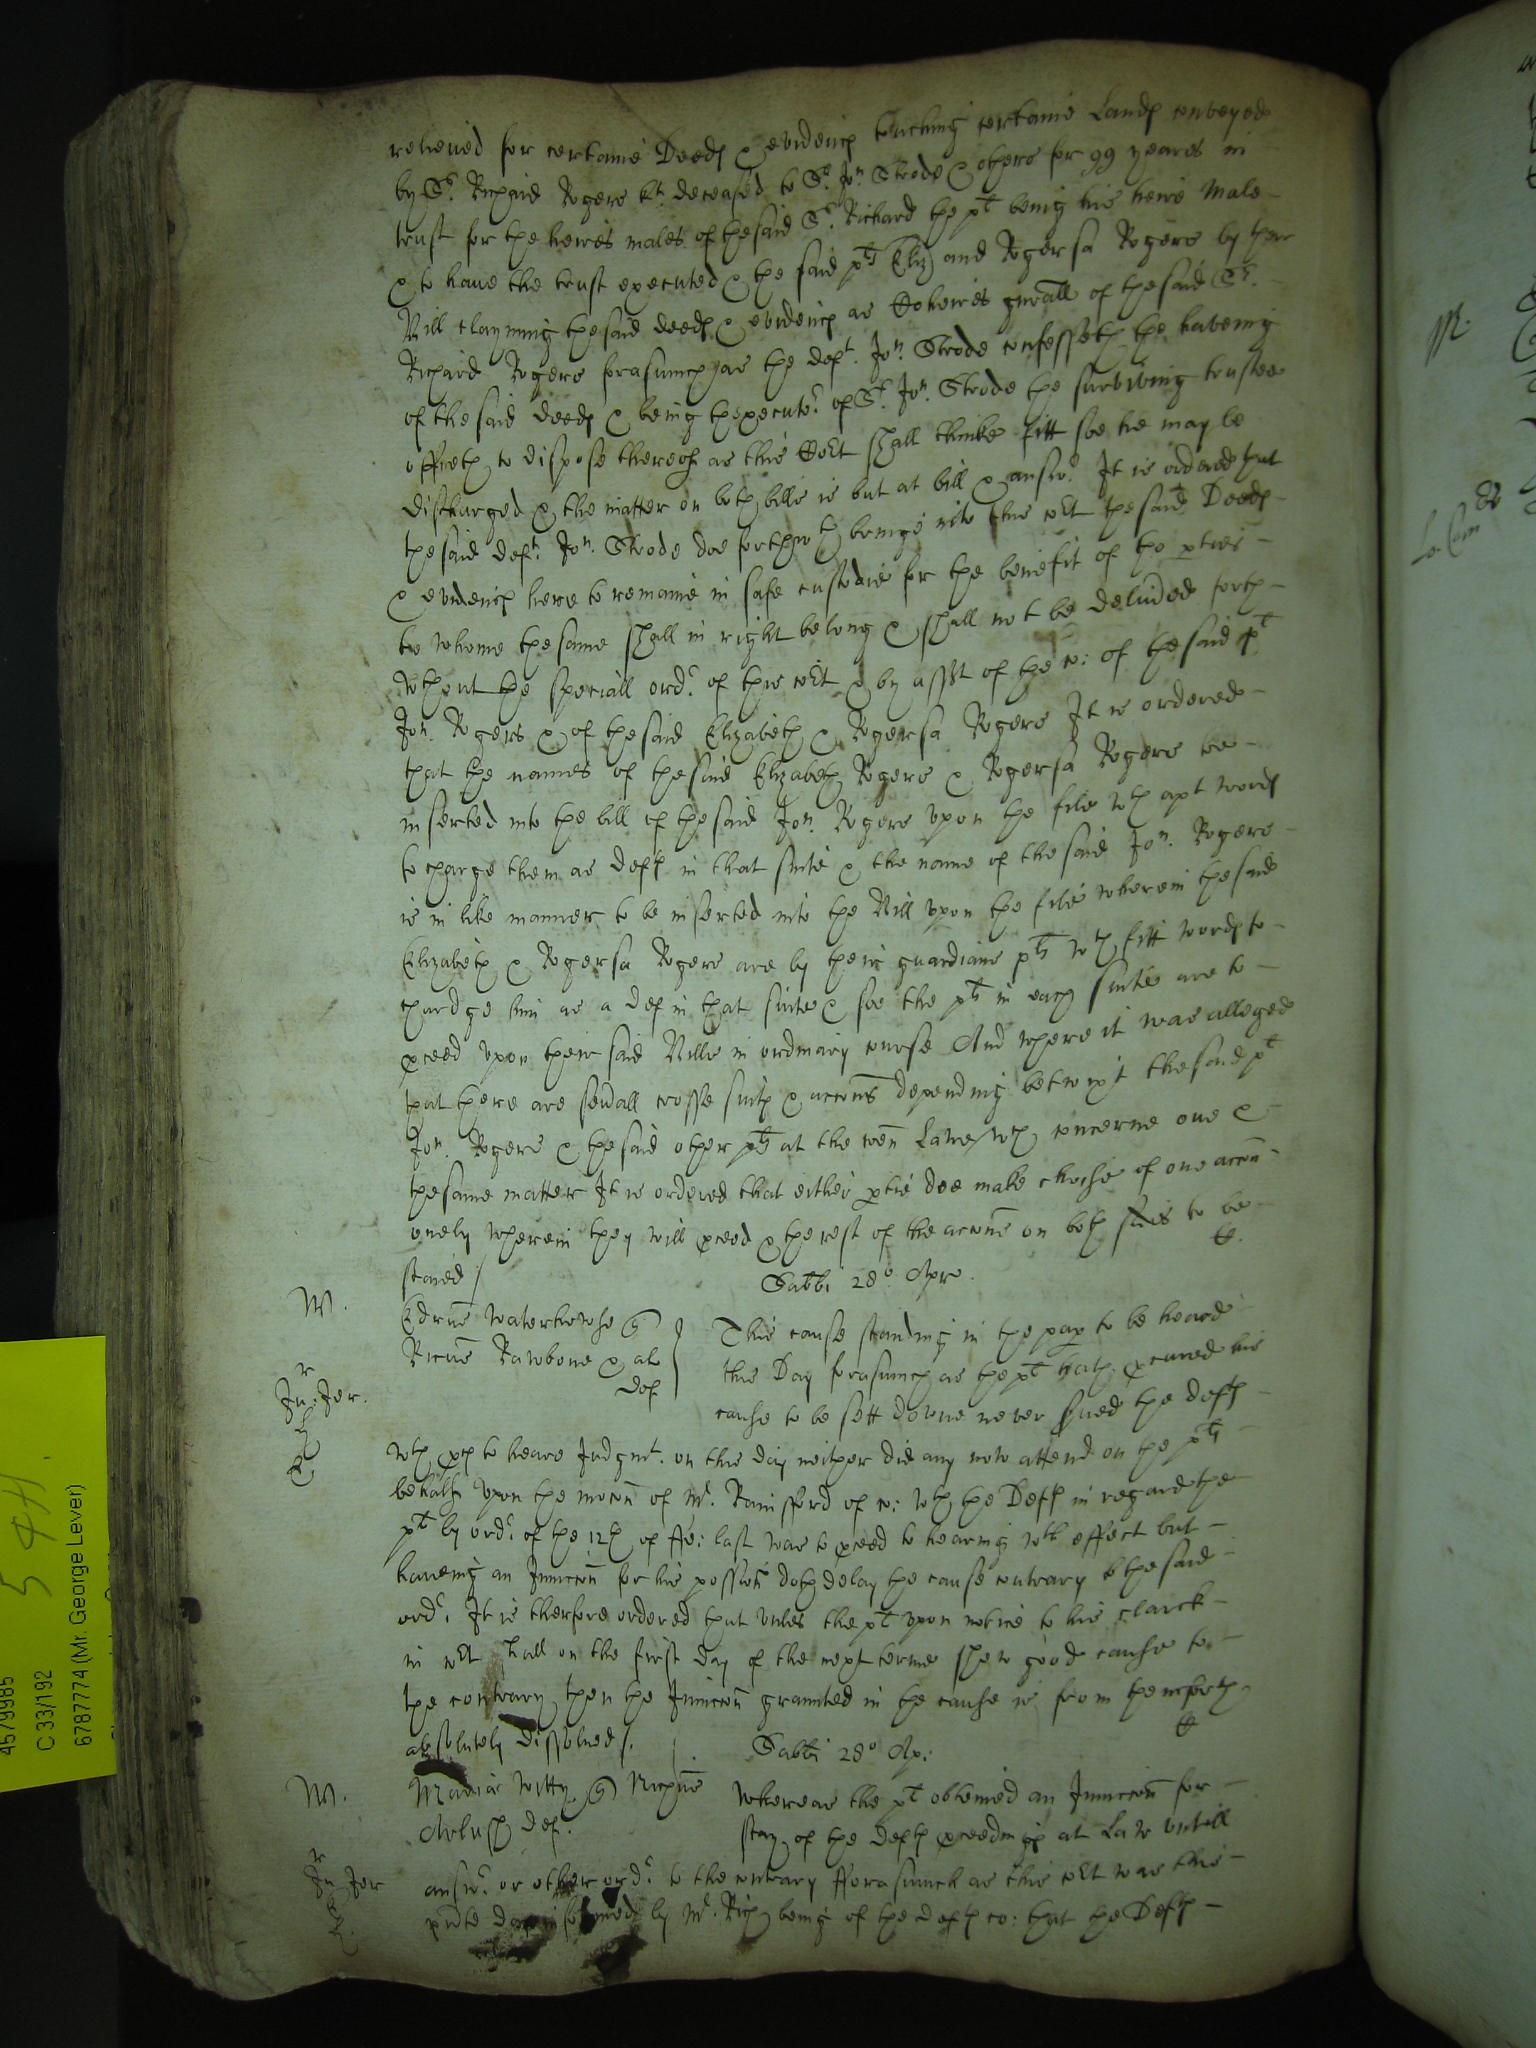 releived for certaine Deeds & evidencs touching certaine Lands conveyed
by Sr. Richard Rogers kt. deceased to Sr. Jon. Strode & others for 99 yeares in
trust for the heires males of the said Sr. Richard the pt being his heire Male
& to have the trust executed & the said pts Eliz and Rogersa Rogers by their
Bill clayming the said deeds & evidencs as Coheires gnrall of the said Sr.
Richard Rogers forasmuch as the deft. Jon. Strode confesseth the haveing
of the said deeds & being thexecutor of Sr. Jon. Strode the surviving trustee
offreth to dispose thereof as this Cort shall thinke fitt soe he may be
discharged & the matter on both bills is but at bill & answr. It is ordered that
the said deft. Jon. Strode doe forthwth bringe into this cort the said Deeds
& evidencs here to remaine in safe custodie for the benefit of the pties
to whome the same shall in right belong & shall not be delived forth
wthout the speciall ordr. of this cort & by asst of the co: of the said pt
Jon. Rogers & of the said Elizabeth & Rogersa Rogers It is ordered
that the names of the said Elizabeth Rogers & Rogersa Rogers be
inserted into the bill of the said Jon. Rogers upon the file wth apt words
to charge them as defts in that suite & the name of the said Jon. Rogers
is in like manner to be inserted into the Bill upon the file wherein the said
Elizabeth & Rogersa Rogers are by their guardians pts wth fitt words to
chardge him as a def in that suite & soe the pts in each suite are to
pceed upon their said Bills in ordinary course And where it was alleged
that there are sevall crosse suits & accons depending betwixt the said pt
Jon. Rogers & the said other pts at the comon Lawe wch concerne one &
the same matter It is ordered that either ptie doe make choise of one accon
onely wherein they will pceed & the rest of the accons on both sides to be
staied /
Sabbi 28o. Apr.
M.
Edrus Waterhowse q
Ricus Rawbone & al
def
This cause standing in the pap to be heard
this Day forasmuch as the pt hath pcured his
cause to be sett downe never sued the defts
Jn: Jer.
wth pces to heare Judgmt. on this day neither did any now attend on the pts
behalfe Upon the mocon of Mr. Rainsford of co: wth the Defts in regard the
pt by ordr. of the 12th of ffe: last was to pceed to hearing wth effect but
haveing an Iniuccon for his possion doth delay the cause contrary to the said
ordr. It is therfore ordered that unles the pt upon notice to his clarck
in cort shall on the first day of the next terme shew good cause to
the contrary then the Iniuccon graunted in the cause is from thenceforth
absolutely dissolved /.
Sabbi 28o Ap:
M.
Maria Witty q Richus
def.
Whereas the pt obteined an Iniuccon for
stay of the defts pceedings at Law untill
Jn Jer
answr. or other ordr. to the contrary fforasmuch as this cort was this
pnte day informed by Mr. Rich being of the defts co: that the Defts
4579985
C 33/192
6787774 (Mr. George Lever)